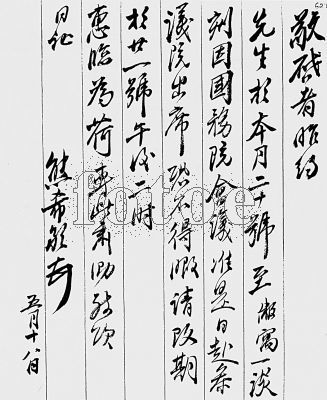 敬啓者昨約
先生於本月二十號至敝寓一談
刻因國務院會議准是日赴參
議院出席恐不得暇請改期
於廿一號午後二时
惠臨為荷專此肅泐敬頌
日祉
熊希齡
五月十八日
fotoe